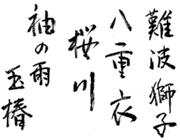 難波獅子
八重衣
桜川
袖の雨
玉椿